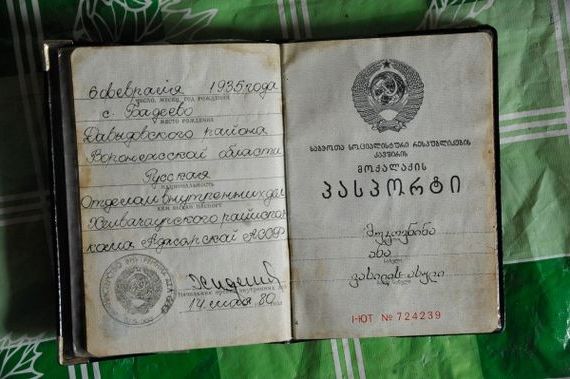 6 февраля 1935 года
число, месяц, год рождения
с. Бадеево
место рождения
Давыдовского района
Воронежской области
Русская
национальность
Отделом внутренних дел
кем выдан паспорт
Хелвачаурского райиспол
кома Аджарской АССР
14 мая 80
საბჭოთა სოციალისტური რესპუბლიკების
კავშირის
მოქალაქის
პასპორტი
ანა
სახელი
I-ЮТ № 724239